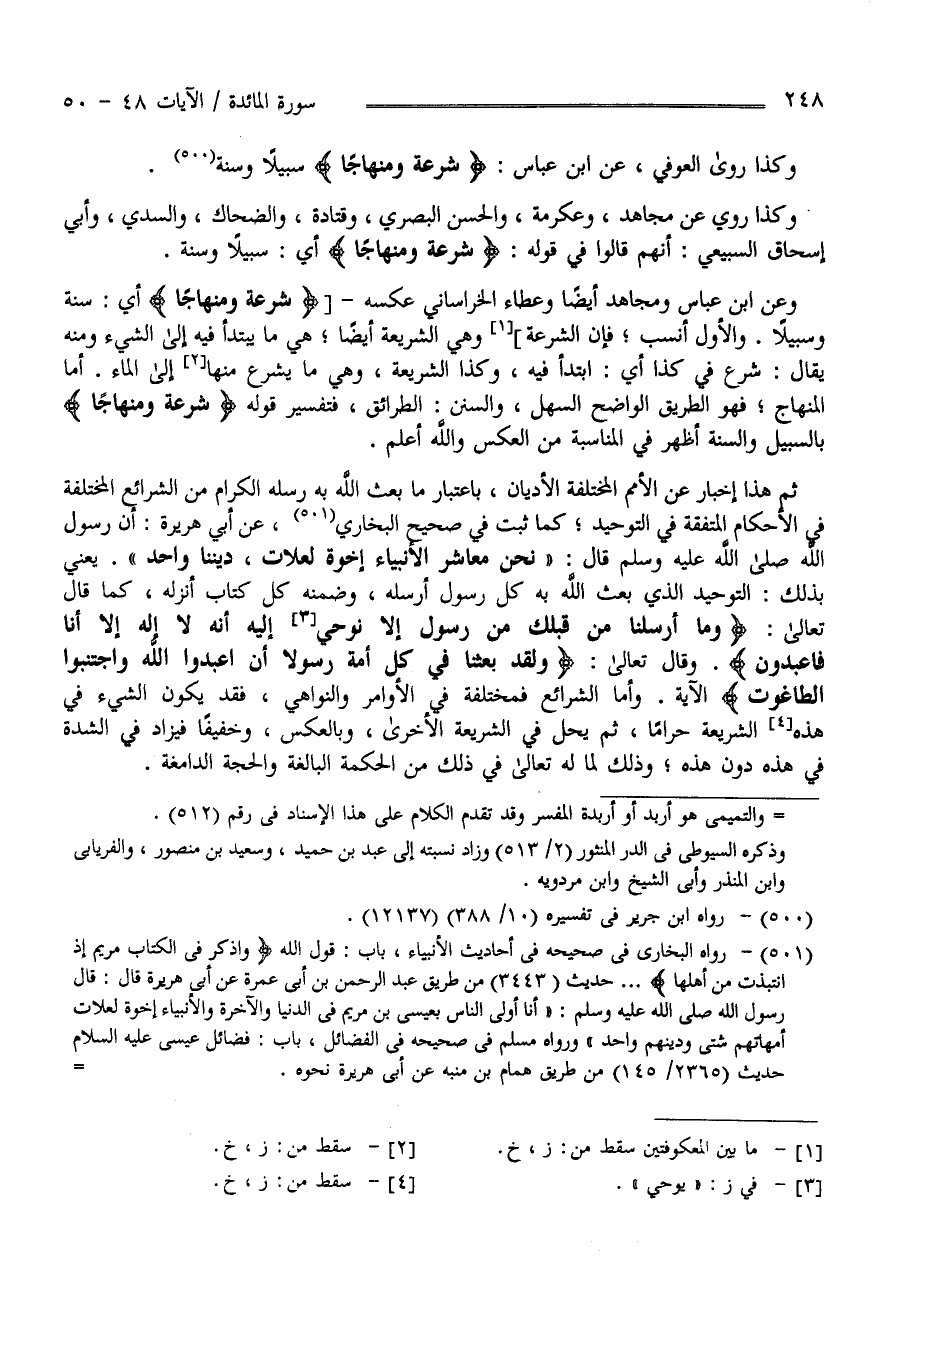 ٢٤٨ سورة المائدة / الآيات ٤٨ - ٥٠
وكذا روىٰ العوفي ، عن ابن عباس : ﴿ شرعة ومنهاجًا ﴾ سبيلًا وسنة(٥٠٠) .
وكذا روي عن مجاهد ، وعكرمة ، والحسن البصري ، وقتادة ، والضحاك ، والسدي ، وأبي
إسحاق السبيعي : أنهم قالوا في قوله : ﴿ شرعة ومنهاجًا ﴾ أي : سبيلًا وسنة .
وعن ابن عباس ومجاهد أيضًا وعطاء الخراساني عكسه – [﴿ شرعة ومنهاجًا ﴾ أي : سنة
وسبيلًا . والأول أنسب ؛ فإن الشرعة][١] وهي الشريعة أيضًا ؛ هي ما يبتدأ فيه إلىٰ الشيء ومنه
يقال : شرع في كذا أي : ابتدأ فيه ، وكذا الشريعة ، وهي ما يشرع منها[٢] إلىٰ الماء . أما
المنهاج ؛ فهو الطريق الواضح السهل ، والسنن : الطرائق ، فتفسير قوله ﴿ شرعة ومنهاجًا ﴾
بالسبيل والسنة أظهر في المناسبة من العكس واللَّه أعلم .
ثم هذا إخبار عن الأمم المختلفة الأديان ، باعتبار ما بعث اللَّه به رسله الكرام من الشرائع المختلفة
في الأحكام المتفقة في التوحيد ؛ كما ثبت في صحيح البخاري(٥٠١) ، عن أبي هريرة : أن رسول
اللَّه صلىٰ اللَّه عليه وسلم قال : « نحن معاشر الأنبياء إخوة لعلات ، ديننا واحد » . يعني
بذلك : التوحيد الذي بعث اللَّه به كل رسول أرسله ، وضمنه كل كتاب أنزله ، كما قال
تعالىٰ : ﴿ وما أرسلنا من قبلك من رسول إلا نوحي[٣] إليه أنه لا إله إلا أنا
فاعبدون ﴾ . وقال تعالىٰ : ﴿ ولقد بعثنا في كل أمة رسولا أن اعبدوا اللَّه واجتنبوا
الطاغوت ﴾ الآية . وأما الشرائع فمختلفة في الأوامر والنواهي ، فقد يكون الشيء في
هذه[٤] الشريعة حرامًا ، ثم يحل في الشريعة الأخرىٰ ، وبالعكس ، وخفيفًا فيزاد في الشدة
في هذه دون هذه ؛ وذلك لما له تعالىٰ في ذلك من الحكمة البالغة والحجة الدامغة .
= والتميمى هو أربد أو أربدة المفسر وقد تقدم الكلام على هذا الإسناد فى رقم (٥١٢) .
وذكره السيوطى فى الدر المنثور (٢/ ٥١٣) وزاد نسبته إلى عبد بن حميد ، وسعيد بن منصور ، والفريابى
وابن المنذر وأبى الشيخ وابن مردويه .
(٥٠٠) – رواه ابن جرير فى تفسيره (١٠/ ٣٨٨) (١٢١٣٧) .
(٥٠١) – رواه البخارى فى صحيحه فى أحاديث الأنبياء ، باب : قول الله ﴿ واذكر فى الكتاب مريم إذ
انتبذت من أهلها ﴾ ... حديث ( ٣٤٤٣) من طريق عبد الرحمن بن أبى عمرة عن أبي هريرة قال : قال
رسول الله صلى الله عليه وسلم : « أنا أولى الناس بعيسى بن مريم فى الدنيا والآخرة والأنبياء إخوة لعلات
أمهاتهم شتى ودينهم واحد » ورواه مسلم فى صحيحه فى الفضائل ، باب : فضائل عيسى عليه السلام
حديث (٢٣٦٥/ ١٤٥) من طريق همام بن منبه عن أبى هريرة نحوه . =
[١] – ما بين المعكوفتين سقط من: ز ، خ. [٢] – سقط من: ز ، خ.
[٣] – في ز : « يوحي » . [٤] – سقط من: ز ، خ.